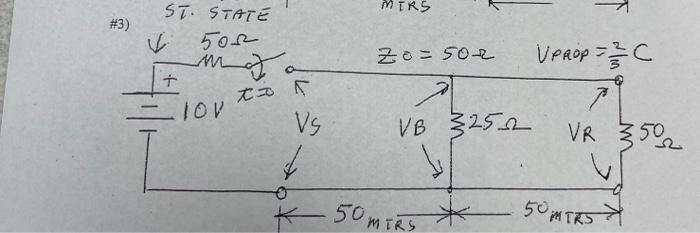 ST. STATE
MTRS
#3)
50Ω
Z0 = 50Ω
VPROP = 2/3 C
+
t=0
10V
VS
VB
25Ω
VR
50Ω
50 MTRS
50 MTRS